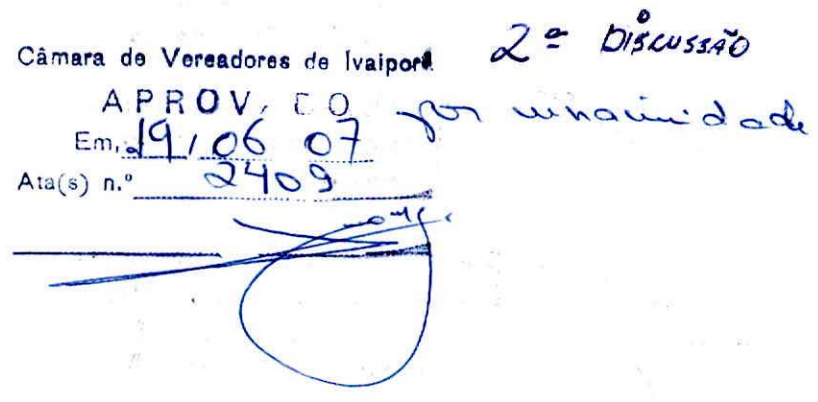 Câmara de Vereadores de Ivaiporã 2ª DISCUSSÃO
APROV, DO por unanimidade
Em, 19/06 07
Ata(s) n.º 2409